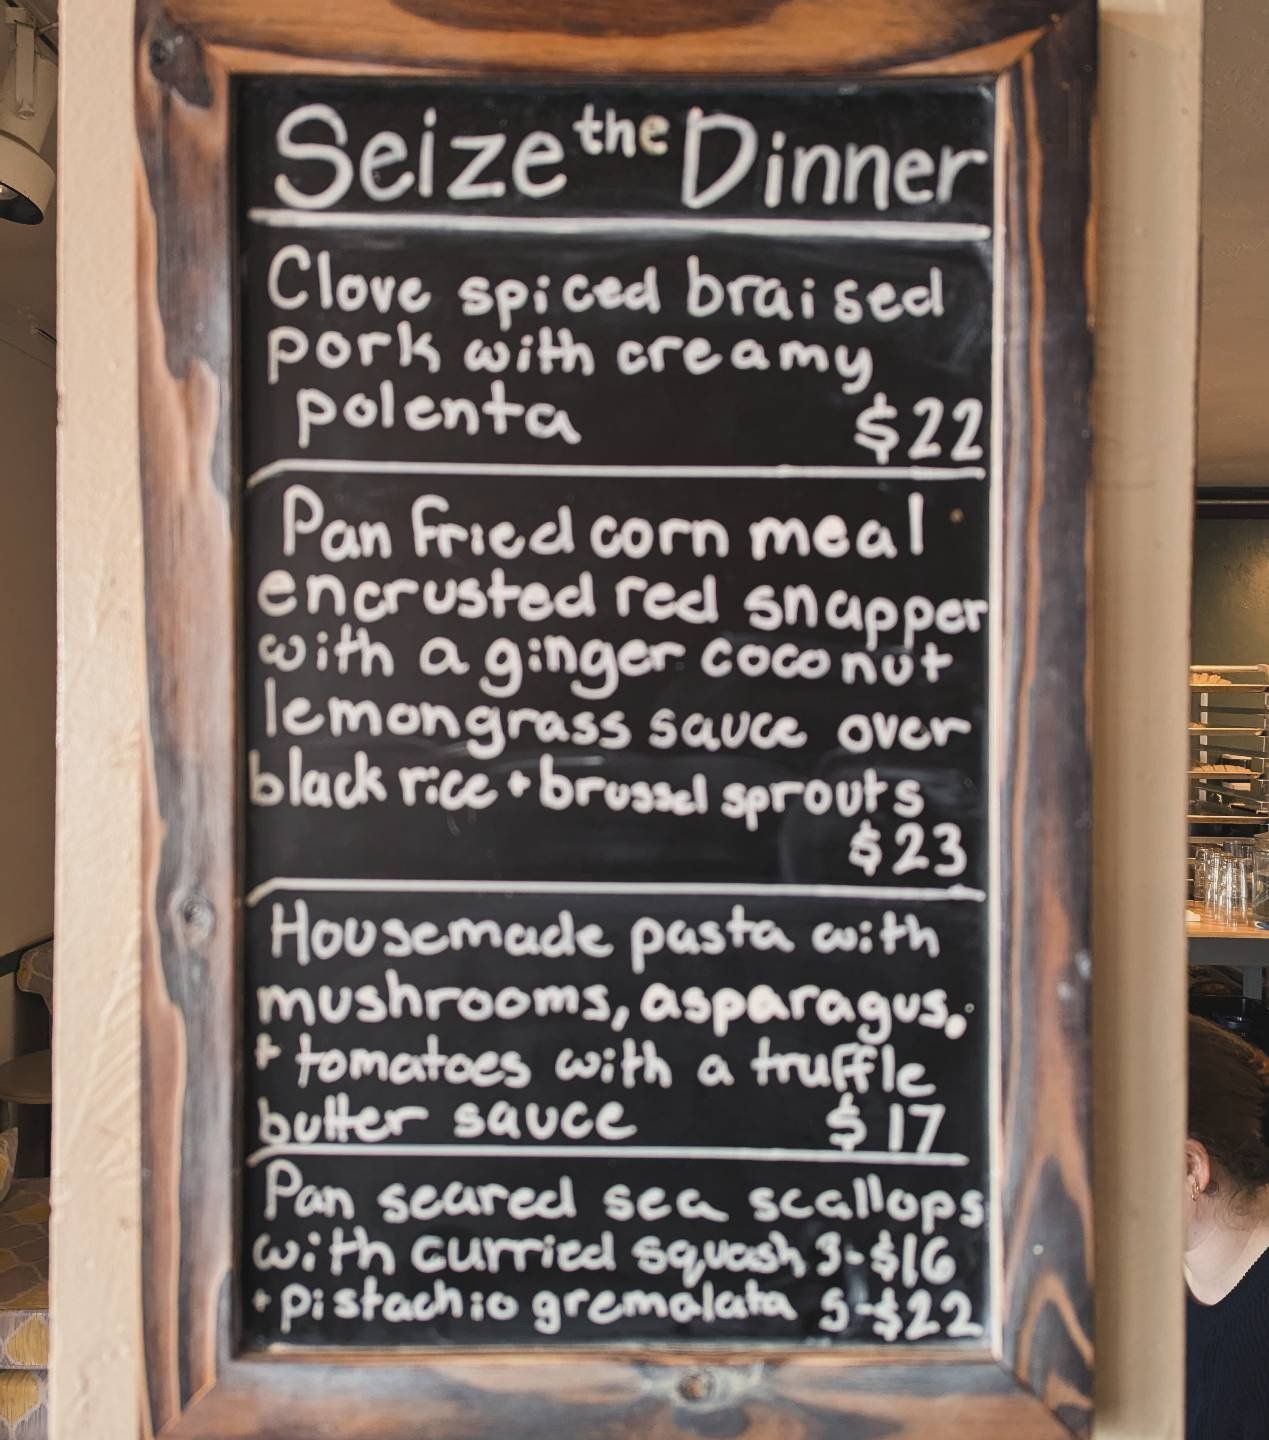 Seize the Dinner
Clove spiced braised
pork with creamy
polenta $22
Pan fried corn meal
encrusted red snapper
with a ginger coconut
lemongrass sauce over
black rice + brussel sprouts
$23
Housemade pasta with
mushrooms, asparagus,
+ tomatoes with a truffle
butter sauce $17
Pan seared sea scallops
with curried squash 3-$16
+ pistachio gremolata 5-$22